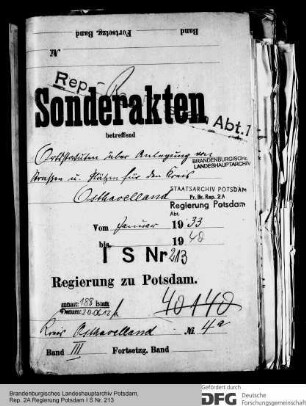 Band
Fortsetzg. Band
№
Rep.
Sonderakten
Abt. 1
betreffend
Ortsstatuten über Anlegung von
BRANDENBURGISCHES
LANDESHAUPTARCHIV
Straßen u. Plätzen für den Kreis
Osthavelland
STAATSARCHIV POTSDAM
Pr. Br. Rep. 2A
Regierung Potsdam
Abt.
Vom Januar 1933
bis 1940
I S Nr 213
Regierung zu Potsdam.
188
40140
Kreis Osthavelland № 4a
Band III Fortsetzg. Band
Brandenburgisches Landeshauptarchiv Potsdam,
Rep. 2A Regierung Potsdam I S Nr. 213
Gefördert durch
DFG
Deutsche
Forschungsgemeinschaft